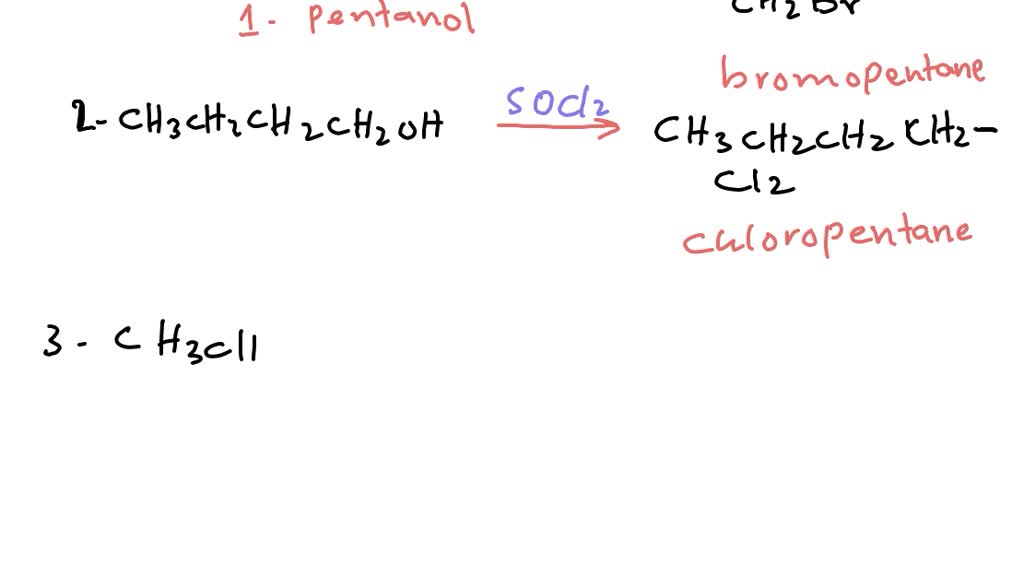 1. pentanol
CH2Br
bromopentane
2- CH3CH2CH2CH2OH SOCl2 CH3CH2CH2CH2-
Cl2
chloropentane
3- CH3Cll